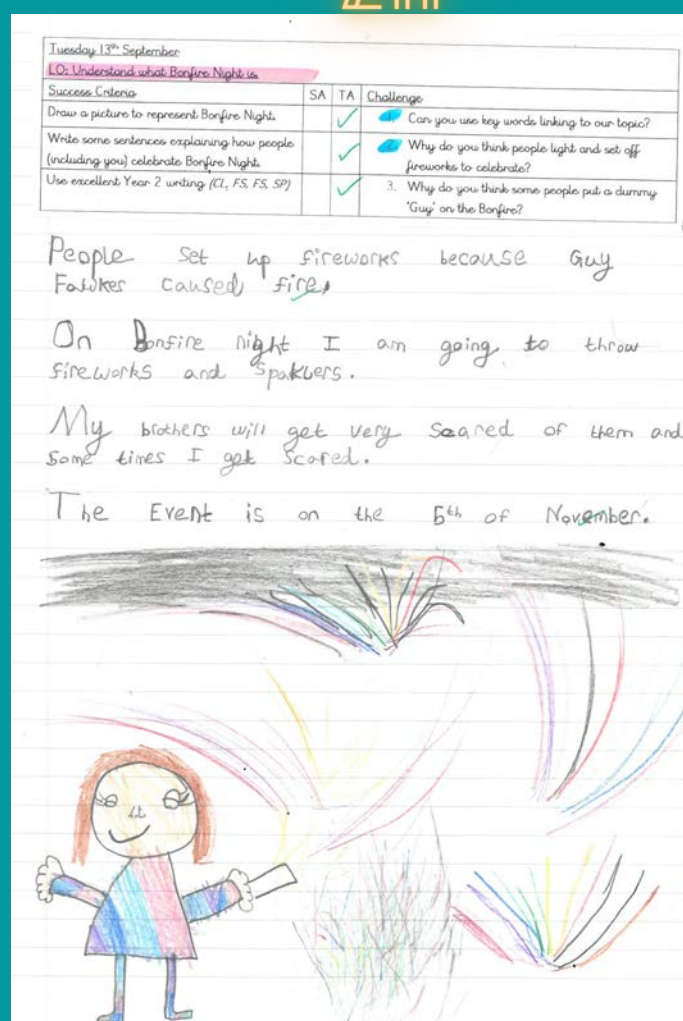 Tuesday 13th September
LO: Understand what Bonfire Night is.
Success Criteria SA TA Challenge
Draw a picture to represent Bonfire Night.
1. Can you use key words linking to our topic?
Write some sentences explaining how people
(including you) celebrate Bonfire Night.
2. Why do you think people light and set off
fireworks to celebrate?
Use excellent Year 2 writing (CL, FS, FS, SP)
3. Why do you think some people put a dummy
'Guy' on the Bonfire?
People set up fireworks because Guy
Fawkes caused fire.
On Bonfire night I am going to throw
fireworks and
My brothers will get very Scared of them and
Some times I get Scared.
The Event is on the 5th of November.